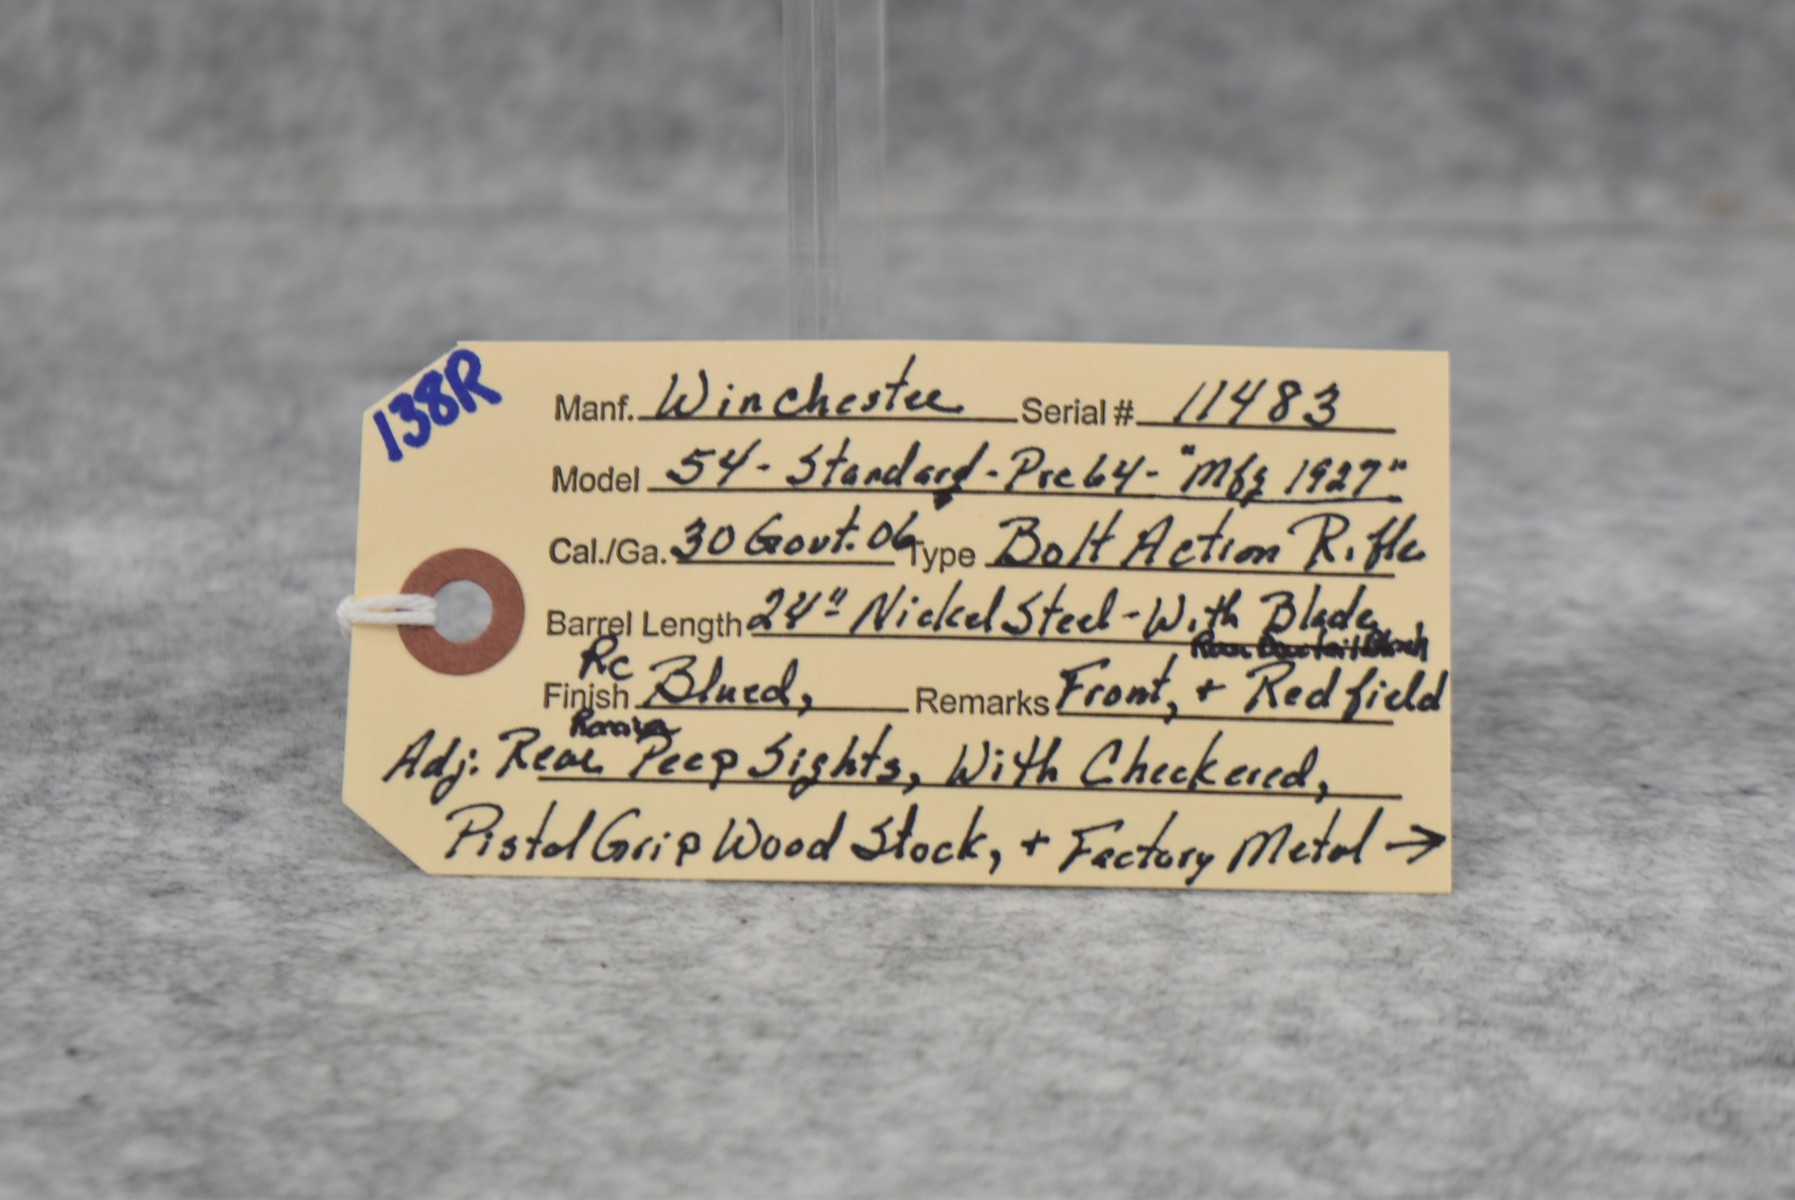 138R
Manf. Winchester Serial # 11483
Model 54 - Standard - Pre 64 - "Mfg 1927"
Cal./Ga. 30 Govt. 06 Type Bolt Action Rifle
Barrel Length 24" Nickel Steel - With Blade,
Re
Finish Blued, Remarks Front, + Redfield
Adj: Rear Peep Sights, With Checkered,
Pistol Grip Wood Stock, + Factory Metal →